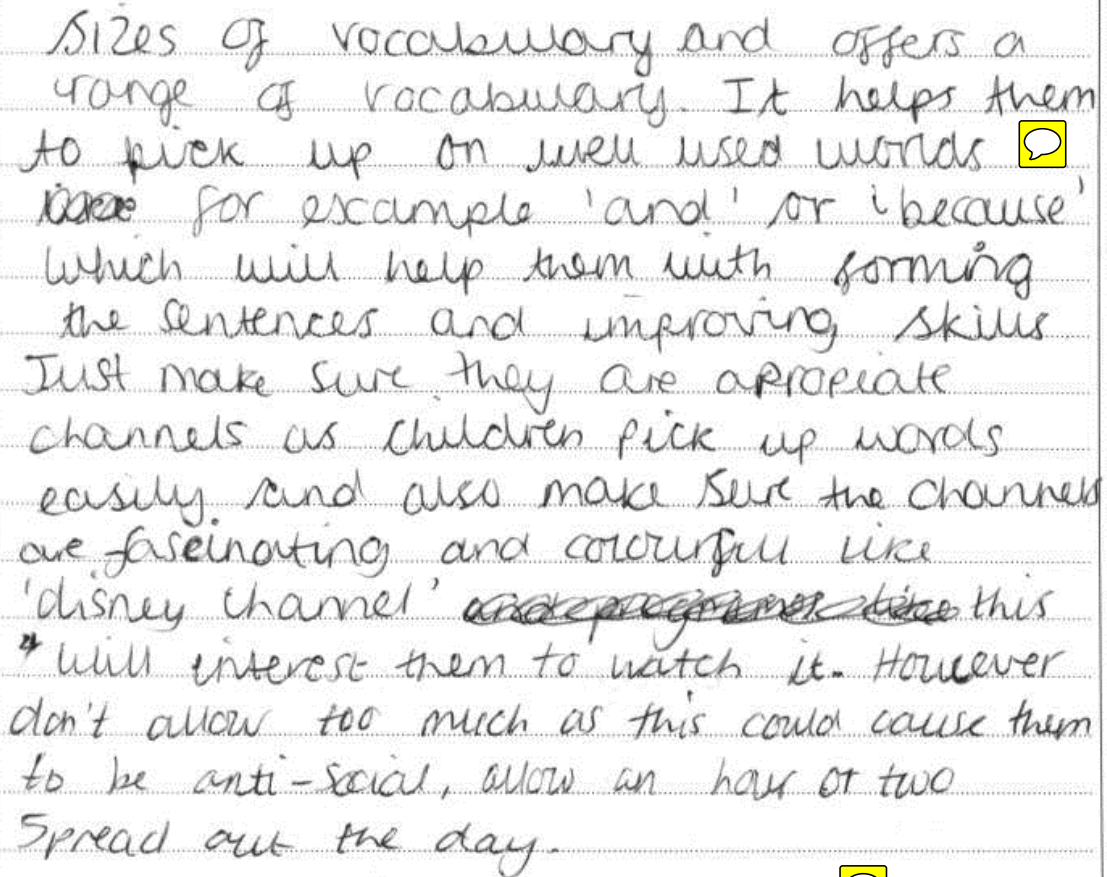 sizes of vocabulary and offers a
range of vocabulary. It helps them
to pick up on well used worlds
for example 'and' or 'because'
which will help them with forming
the sentences and improving skills
Just make sure they are apropiate
channels as children pick up words
easily and also make sure the channels
are fascinating and colourfull like
'disney channel' this
will interest them to watch it. However
don't allow too much as this could cause them
to be anti-social, allow an hour or two
spread out the day.